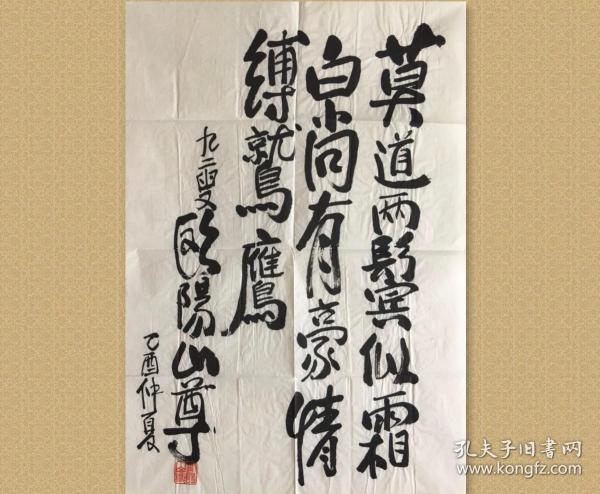 莫道两鬓似霜
白尚有豪情
缚鹫鹰
九二叟 欧陽山尊
乙酉仲夏
孔夫子旧书网
www.kongfz.com